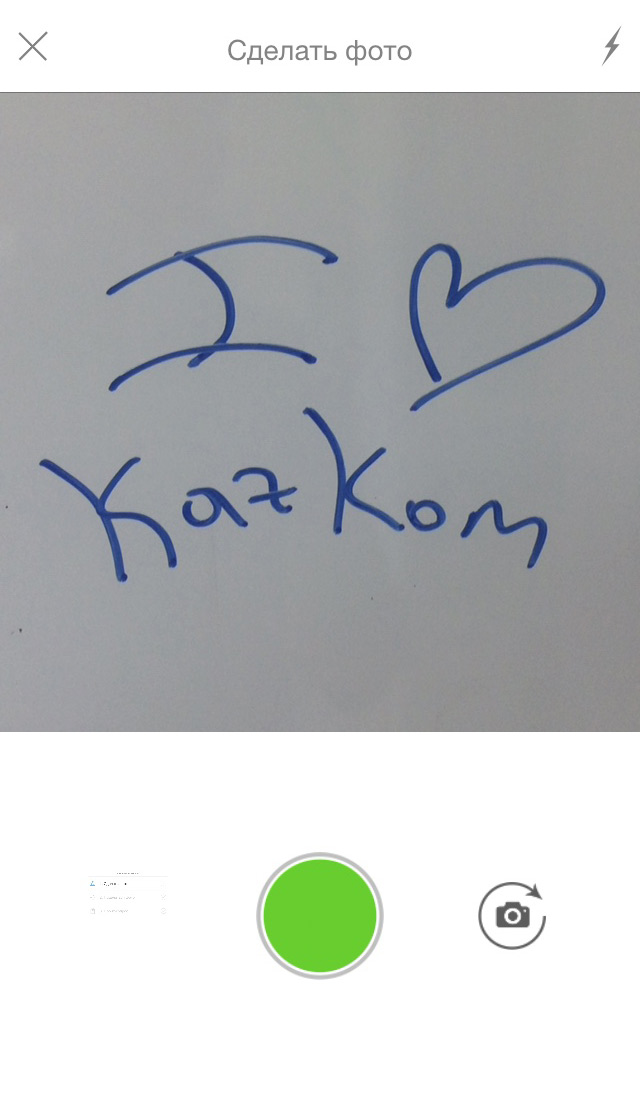 Сделать фото
I ♡
KazKom